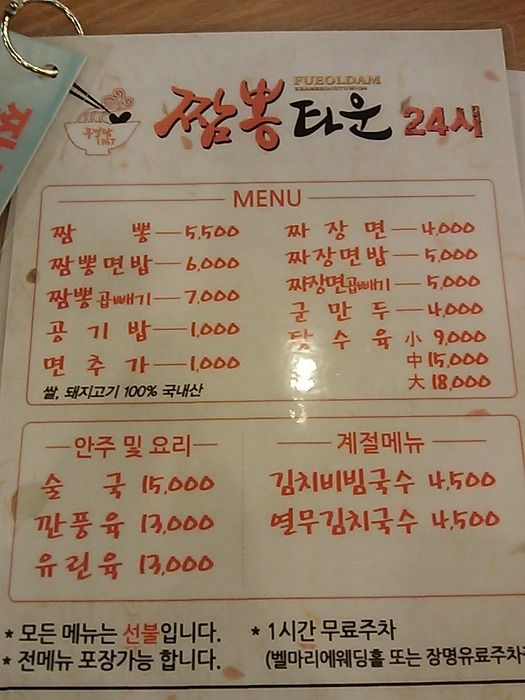 FUEOLDAM
짬뽕타운 24시
푸얼담
1967
MENU
짬 뽕 5,500
짬뽕면밥 6,000
짬뽕곱빼기 7,000
공기밥 1,000
면추가 1,000
쌀, 돼지고기 100% 국내산
짜장면 4,000
짜장면밥 5,000
짜장면곱빼기 5,000
군만두 4,000
탕수육 小 9,000
中 15,000
大 18,000
안주 및 요리
술 국 15,000
깐풍육 13,000
유린육 13,000
계절메뉴
김치비빔국수 4,500
열무김치국수 4,500
* 모든 메뉴는 선불입니다.
* 전메뉴 포장가능 합니다.
* 1시간 무료주차
(벨마리에웨딩홀 또는 장명유료주차